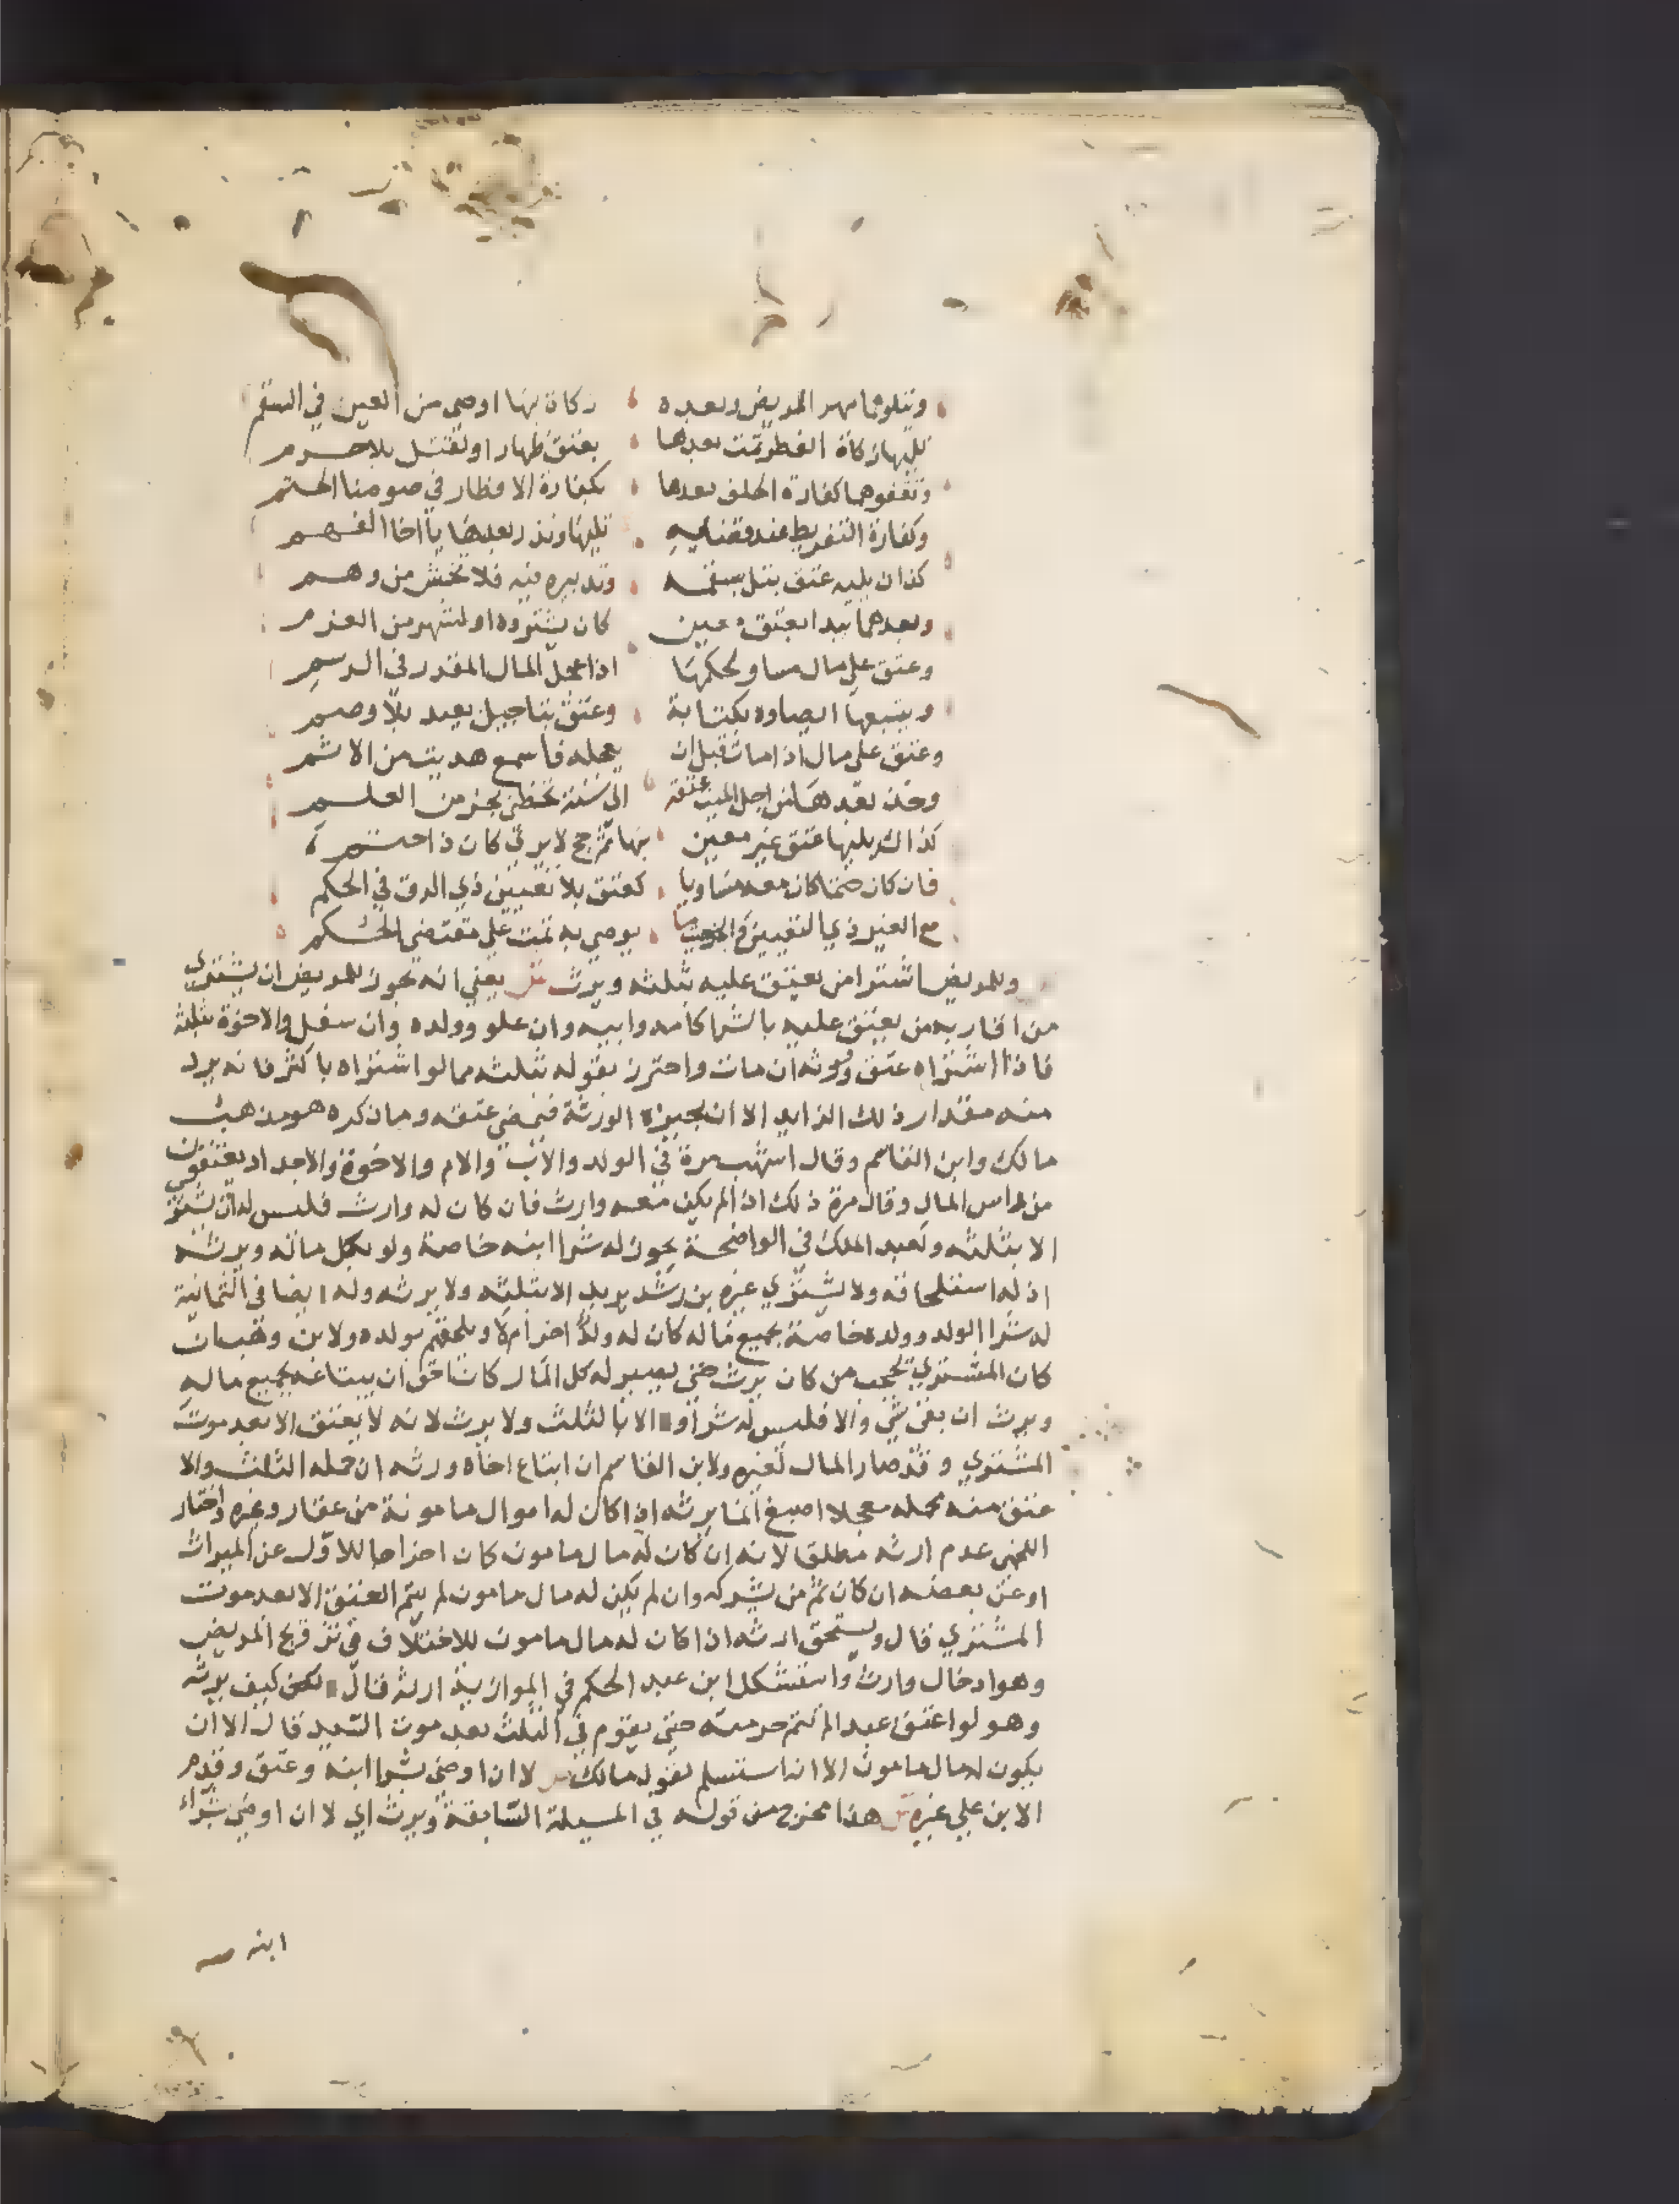 وتتلوهما مهر المريض وبعده زكاة بها اوصى من العين في السقم
تليها زكاة الفطر ثمت بعدها بعتق ظهار او لقتل بلا جرم
وتقفوهما كفارة الحلف بعدها بكفارة الافطار في صومنا الحتم
وكفارة التفريط عند قضايه تليها ونذر بعدها يا اخا الفهم
كذا ان يليه عتق بتل بسقمه وتدبيره فيه فلا تخش من وهم
وبعدهما يبدا بعتق معين كان يشتروه او لشهر من العزم
وعتق على مال مساو لحكمها اذا عجل المال المقدر في الرسم
ويتبعها ايصاوه بكتابة وعتق بتاجيل بعيد بلا وصم
وعتق على مال اذا مات قبل ان يعجله فاسمع هديت من الاثم
وخذ بعدها من اجل الميت عتقه الى سنة تحظى بجز من العلم
كذالك يليها عتق غير معين بها ثم حج لا يرى كان ذا حتم
فان كان ضمنا كان معه مساويا كعتق بلا تعيين ذي الرق في الحكم
مع الغير ذي التعيين والجز يوصي به تمت على مقتضى الحكم
وللمريض اشترا من يعتق عليه بثلثه ويرث ش يعني انه يجوز للمريض ان يشتري
من اقاربه من يعتق عليه بالشرا كامه وابيه وان علو وولده وان سفل والاخوة بثلثه
فاذا اشتراه عتق وورثه ان مات واحترز بقوله بثلثه مما لو اشتراه باكثر فانه يرد
منه مقدار ذلك الزايد الا ان يجيزه الورثة فيمضي عتقه وما ذكره هو مذهب
مالك وابن القاسم وقال اشهب مرة في الولد والاب والام والاخوة والاجداد يعتقون
من راس المال وقال مرة ذلك اذا لم يكن معه وارث فان كان له وارث فليس له ان يشتري
الا بثلثه ولعبد الملك في الواضحة يجوز له شرا ابنه خاصة ولو بكل ماله ويرثه
اذ له استلحاقه ولا يشتري غيره بن رشد يريد الا بثلثه ولا يرثه وله ايضا في الثمانية
له شرا الولد وولده خاصة بجميع ماله كان له ولد اخر ام لا ويلحقهم بولده ولابن وهب ان
كان المشتري يحجب من كان يرث حتى يصير له كل المال كان احق ان يبتاعه بجميع ماله
ويرث ان بقي شي والا فليس له شراو الا بالثلث ولا يرث لانه لا يعتق الا بعد موت
المشتري وقد صار المال لغيره ولابن القاسم ان ابتاع اخاه ورثه ان حمله الثلث والا
عتق منه محمله معجلا اصبغ انما يرثه اذا كان له اموال مامونة من عقار وغيره واختار
اللخمي عدم ارثه مطلقا لانه ان كان له مال مامون كان اخراجا للاول عن الميراث
او عن بعضه ان كان ثم من يشركه وان لم يكن له مال مامون لم يتم العتق الا بعد موت
المشتري قال ويستحق ارثه اذا كان له مال مامون للاختلاف في تزويج المريض
وهو ادخال وارث واستشكل ابن عبد الحكم في الموازية ارثه قال كيف يرثه
وهو لو اعتق عبدا لم تتم حرمته حتى يقوم في الثلث بعد موت السيد قال الا ان
يكون له مال مامون الا انه استسلم لقول مالك ص لا ان اوصى بشرا ابنه وعتق وقدم
الابن على غيره ش هذا مخرج من قوله في المسيلة السابقة ويرث اي لا ان اوصى بشراء
ابنه